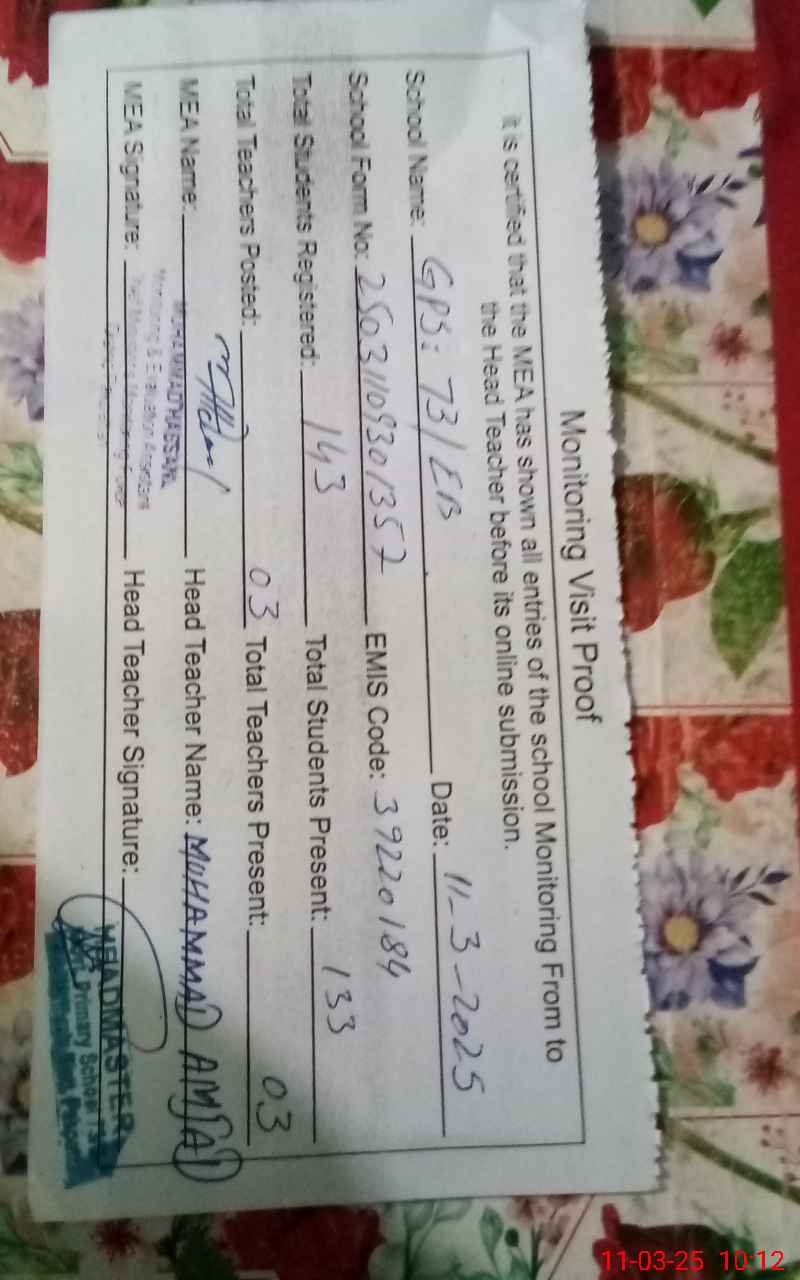 Monitoring Visit Proof
it is certified that the MEA has shown all entries of the school Monitoring From to
the Head Teacher before its online submission.
School Name: GPS: 73/EB Date: 11-3-2025
School Form No: 25031109301357 EMIS Code: 39220184
Total Students Registered: 143 Total Students Present: 133
Total Teachers Posted: 03 Total Teachers Present: 03
MEA Name: Head Teacher Name: MUHAMMAD AMJAD
MUHAMMAD HASSAN
Monitoring & Evaluation Assistant
MEA Signature: Head Teacher Signature:
HEADMASTER
Primary School
11-03-25 10:12